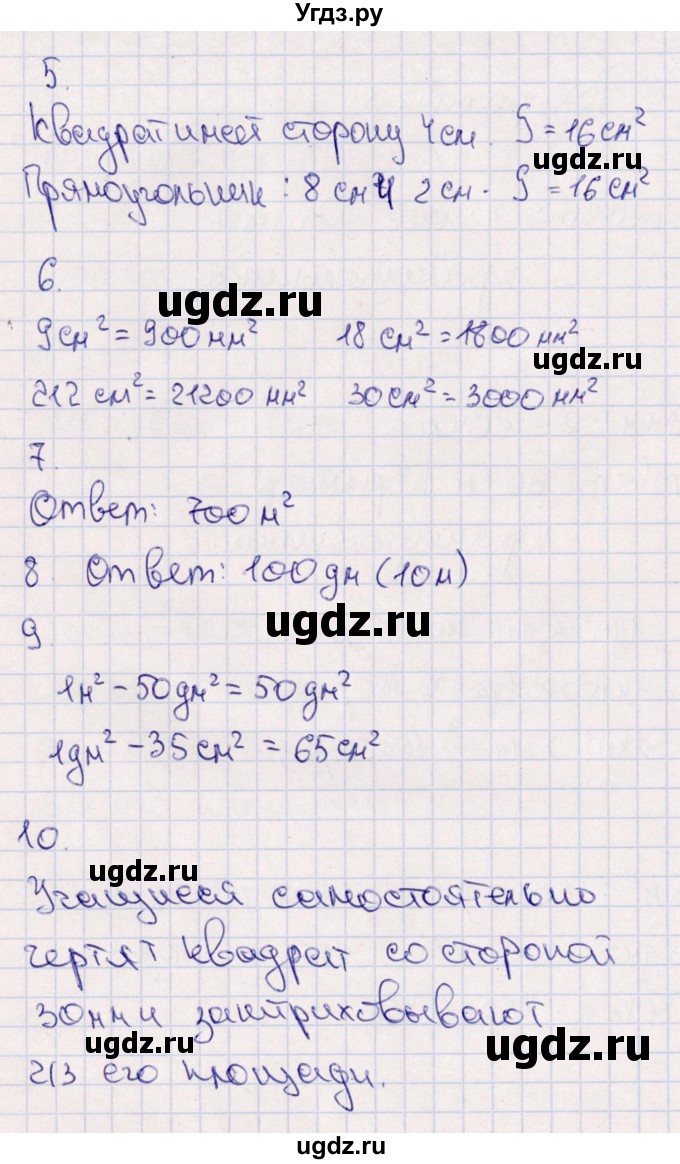 Угдз.ру
5.
Квадрат имеет сторону 4 см. S = 16 см²
ugdz.ru
Прямоугольник: 8 см и 2 см. S = 16 см²
6.
ugdz.ru
9 см² = 900 мм² 18 см² = 1800 мм²
ugdz.ru
212 см² = 21200 мм² 30 см² = 3000 мм²
7.
Ответ: 700 м²
8 Ответ: 100 дм (10 м)
ugdz.ru
9
1 м² - 50 дм² = 50 дм²
1 дм² - 35 см² = 65 см²
10.
ugdz.ru
Учащиеся самостоятельно
чертят квадрат со стороной
30 мм и заштриховывают
ugdz.ru
ugdz.ru
2/3 его площади.
ugdz.ru